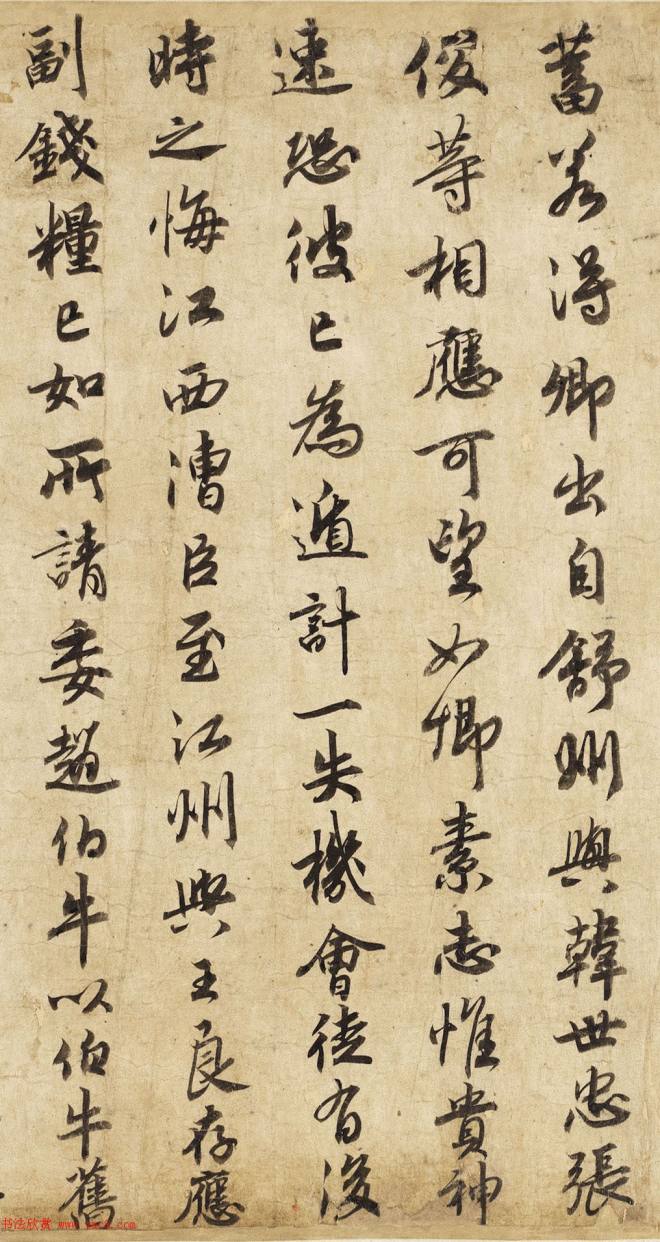 蓄若得卿出自舒州與韓世忠張
俊等相應可望如卿素志惟貴神
速恐彼已為遁計一失機會徒有後
時之悔江西漕臣至江州與王良存應
副錢糧已如所請委趙伯牛以伯牛舊
书法欣赏